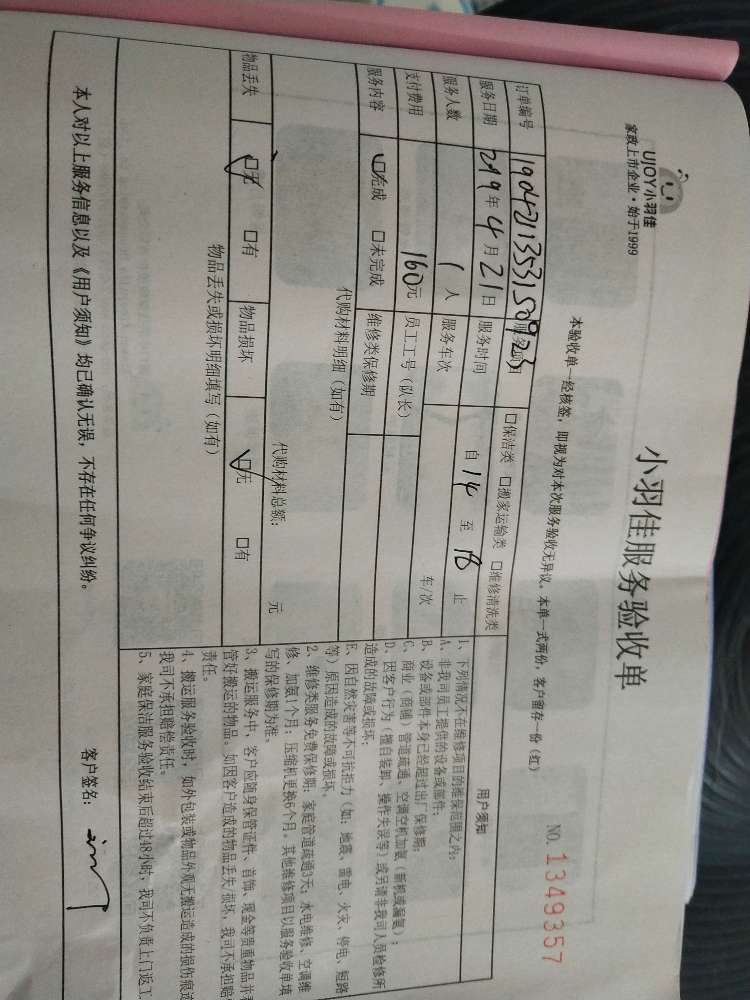 UJOY小羽佳
家政上市企业·始于1999
小羽佳服务验收单
本验收单一经核签，即视为对本次服务验收无异议。本单一式两份，客户留存一份（红）
NO. 1349357
订单编号 服务项目 □保洁类 □搬家运输类 □维修清洗类
服务日期 2019年4月21日 服务时间 自14至18止
服务人数 1人 服务车次 车/次
支付费用 160元 员工工号（队长）
服务内容 □完成 □未完成 维修类保修期
代购材料明细（如有）
代购材料总额： 元
物品丢失 □无 □有 物品损坏 □无 □有
物品丢失或损坏明细填写（如有）
用户须知
1、下列情况不在维修项目的维保范围之内：
A、非我司员工提供的设备或部件；
B、设备或部件本身已经超过出厂保修期；
C、商业（商铺）管道疏通、空调空机加氨（新机或漏氨）；
D、因客户行为（擅自装卸、操作失误等）或另请非我司人员检修所
造成的故障或损坏；
E、因自然灾害等不可抗拒力（如：地震、雷电、火灾、停电、短路
等）原因造成的故障或损坏。
2、维修类服务免费保修期：家庭管道疏通3天；水电维修、空调维
修、加氨1个月；压缩机更换6个月。其他维修项目以服务验收单填
写的保修期为准。
3、搬运服务中，客户应随身保管证件、首饰、现金等贵重物品并看
管好搬运的物品。如因客户造成的物品丢失、损坏，我司不承担赔偿
责任。
4、搬运服务验收时，如外包装或物品外观无搬运造成的损伤痕迹
我司不承担赔偿责任。
5、家庭保洁服务验收结束后超过48小时，我司不负责上门返工
本人对以上服务信息以及《用户须知》均已确认无误，不存在任何争议纠纷。
客户签名：